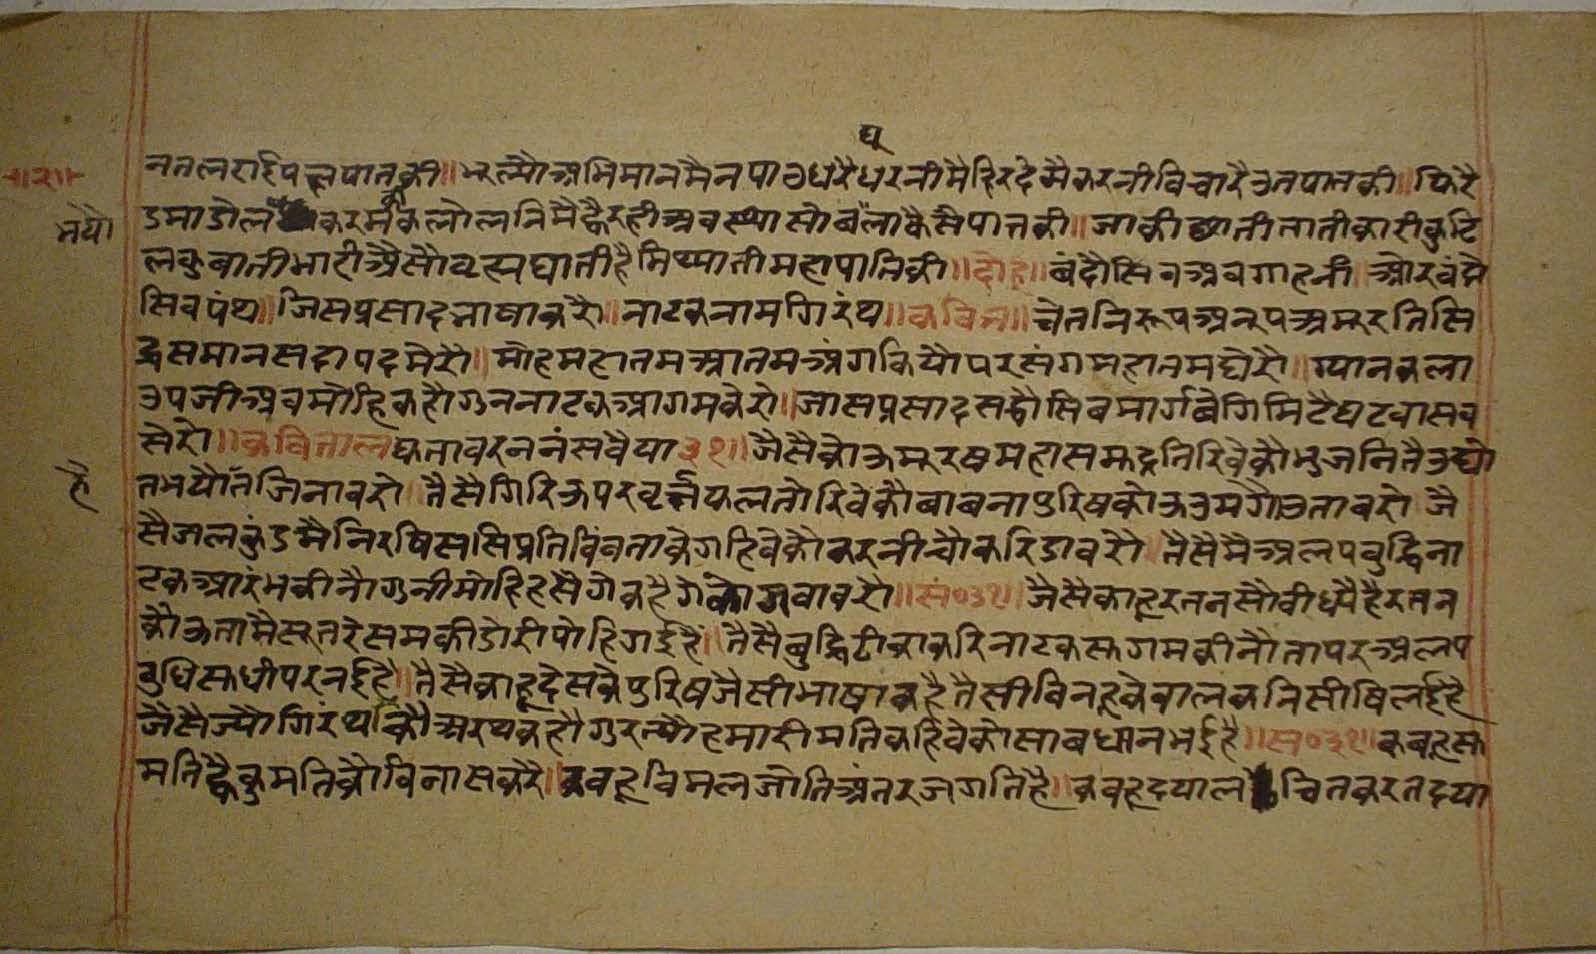 घ
॥२॥ नतलहाईपलपातकी॥ भूल्यौअभिमानमैनपाउधरैधरनीमैहिरदैमैकरनीविचारैउतपातकी॥ फिरै
भयौ डमाडोल करमकैकलोलनिमैह्वैरहीअवस्थासोबघूलाकैसैपातकी॥ जाकीछातीतातीकारीकुटि
लकुबातीभारीअैसौब्रह्मघातीहैमिथ्यातीमहापातिकी॥ दोहा॥ बंदौसिवअवगाहनां अोरबंदौ
सिवपंथ॥ जिसप्रसादभाषाकरौ॥ नाटकनामगिरंथ॥ कवित॥ चेतनिरूपअनूपअमूरतिसि
द्धसमानसदापदमेरौ॥ मोहमहातमआतमअंगकियौपरसंगमहातमघेरौ॥ ग्यानकला
उपजीअबमोहिकहौगुननाटकआगमकेरो॥ जासप्रसादसधैसिवमार्गबेगिमिटैघटवासब
सेरो॥ कवितालघुतावरननंसवैया३१॥ जैसैकोऊमूरषमहासमुद्रतिरिवेकौभुजनितैउद्यो
है तभयौतजिनावरो तैसैगिरिऊपरवृर्छफलतोरिवेकौबाबनापुरिषकोऊउमगोउतावरो जै
सैजलकुंडमैनिरषिससिप्रतिविंबताकेगहिवेकौकरनीचौकरिडावरो तैसैमैअलपबुद्धिना
टकआरंभकीनौगुनीमोहिहसैगेकहैगेकोऊबावरौ॥ सं०३१॥ जैसैकाहूरतनसौवीध्यौहैरतन
कौऊतामैसूतरेसमकीडोरीपोहिगईहै॥ तैसैबुद्धिटीकाकरिनाटकसुगमकीनौतापरअलप
बुधिसुधीपरनईहै॥ तैसैकाहूदेसकेपुरिषजैसीभाषाकहैतैसीविनहूकेबालकनिसीषिलईहै
जैसैज्यौगिरंथकौअरथकहौगुरत्यौहमारीमतिकहिवेकोसाबधानभईहै॥ स०३१॥ कबहूसु
मतिह्वैकुमतिकौविनासकरै॥ कबहूविमलजोतिअंतरजगतिहै॥ कबहूदयाल चितकरतदया